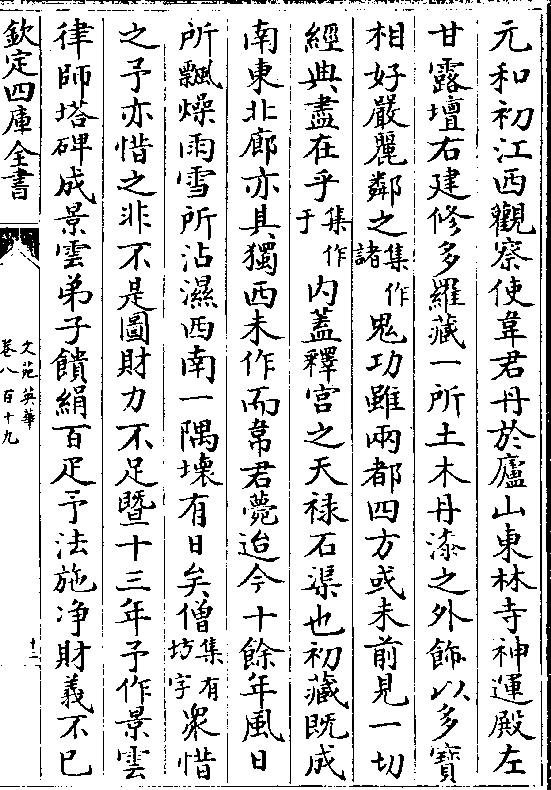 元和初江西觀察使韋君丹於廬山東林寺神運殿左
甘露壇右建修多羅藏一所土木丹漆之外飾以多寶
相好嚴麗鄰之集作諸鬼功雖兩都四方或未前見一切
經典盡在乎集作于内蓋釋宫之天禄石渠也初藏既成
南東北廊亦具獨西未作而韋君薨迨今十餘年風日
所飄燥雨雪所沾濕西南一隅壞有日矣僧集有坊字衆惜
之予亦惜之非不是圖財力不足暨十三年予作景雲
律師塔碑成景雲弟子饋絹百疋予法施浄財義不已
欽定四庫全書
文苑英華
卷八百十九
十二